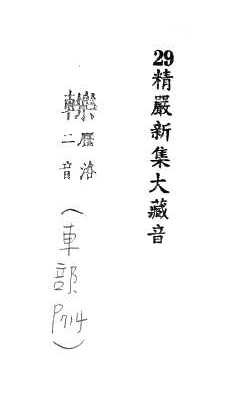 29精嚴新集大藏音
轢歷洛二音
(車部P714)